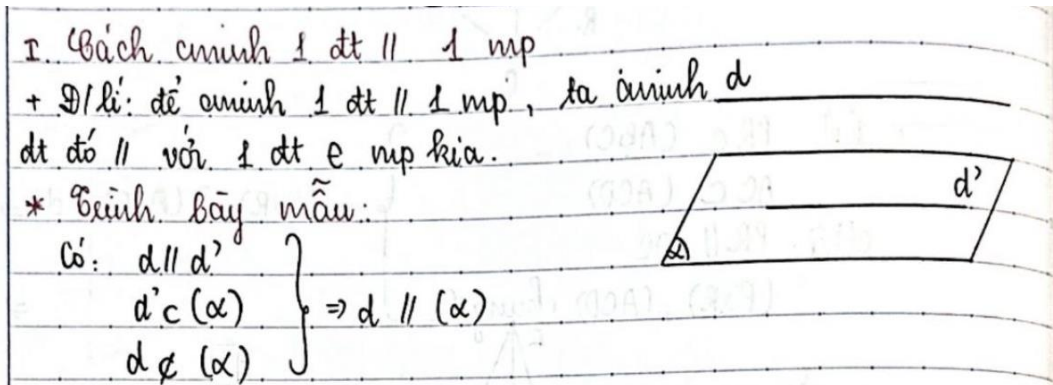 I. Cách cminh 1 đt // 1 mp
+ Đ/lí: để cminh 1 đt // 1 mp, ta cminh
đt đó // với 1 đt e mp kia.
* Trình bày mẫu:
Có: d // d'
d' c (α)
d ¢ (α)
} ⇒ d // (α)
d
d'
α)